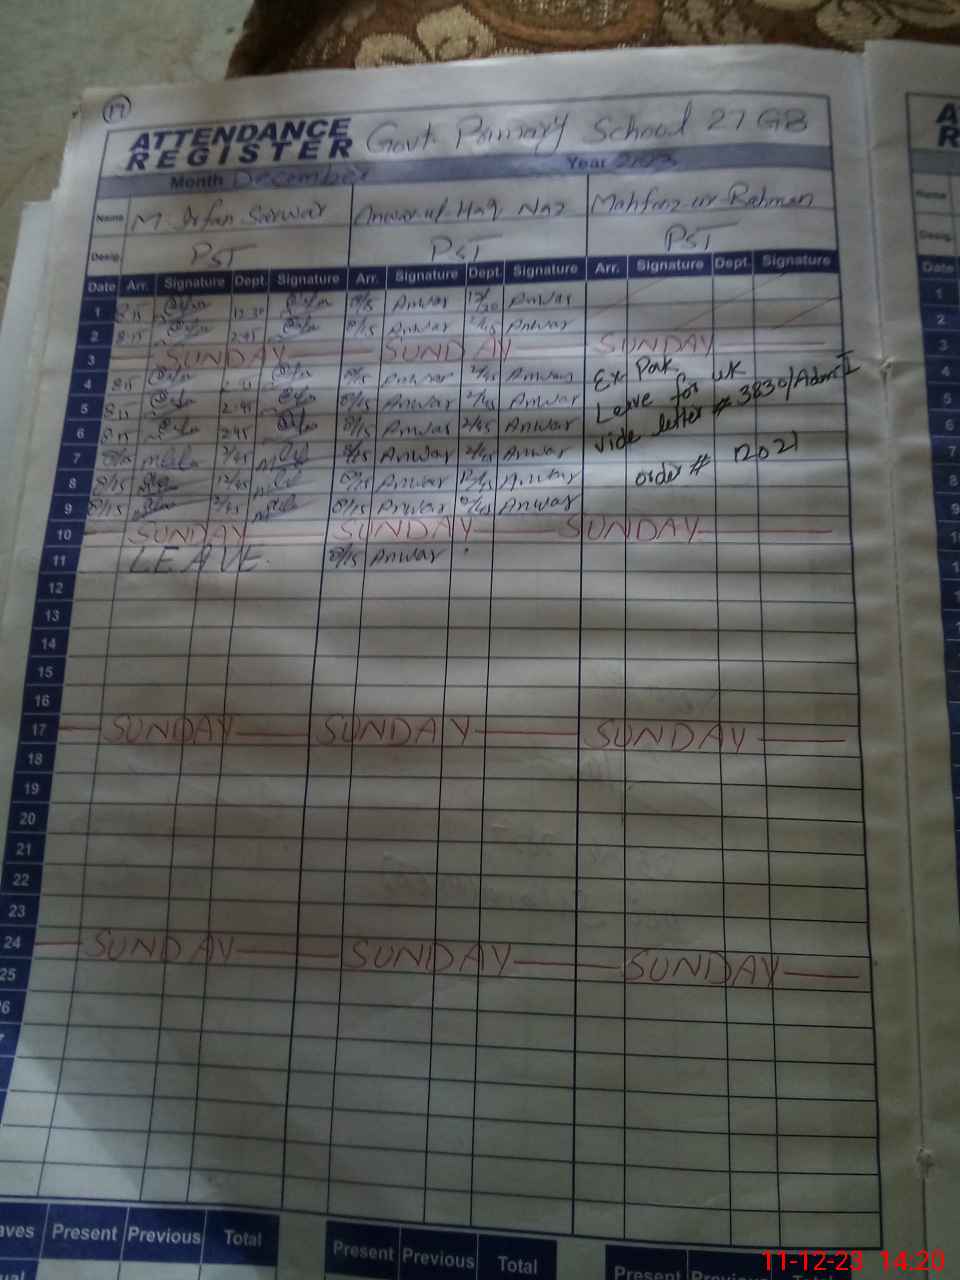 17
ATTENDANCE
REGISTER
Govt. Primary School 27 GB
Month December Year 2023
Name M. Irfan Sarwar Anwar ul Haq Naz Mahfooz ur Rahman
Desig. PST PST PST
Date Arr. Signature Dept. Signature Arr. Signature Dept. Signature Arr. Signature Dept. Signature
1 8:15 12:30 8/15 Anwar 12/30 Anwar
2 8:15 2:45 8/15 Anwar 2/45 Anwar
3 SUNDAY SUNDAY SUNDAY
4 8:15 2:45 8/15 Anwar 2/45 Anwar Ex Pak
5 8:15 2:45 8/15 Anwar 2/45 Anwar Leave for UK
6 8:15 2:45 8/15 Anwar 2/45 Anwar vide letter # 3830/Admn I
7 8/15 2/45 8/15 Anwar 2/45 Anwar
8 8/15 12/45 8/15 Anwar 12/45 Anwar order # 12021
9 8/15 2/45 8/15 Anwar 2/45 Anwar
10 SUNDAY SUNDAY SUNDAY
11 LEAVE 8/15 Anwar
12
13
14
15
16
17 SUNDAY SUNDAY SUNDAY
18
19
20
21
22
23
24 SUNDAY SUNDAY SUNDAY
25
Present Previous Total Present Previous Total Present
11-12-23 14:20